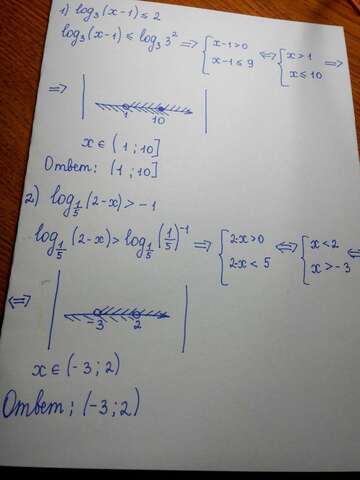 1) log₃(x-1) ≤ 2
log₃(x-1) ≤ log₃ 3² => { x-1>0 ; x-1≤9 <=> { x>1 ; x≤10 =>
=> | 1 10 |
x ∈ (1 ; 10]
Ответ: (1 ; 10]
2) log_{1/5} (2-x) > -1
log_{1/5} (2-x) > log_{1/5} (1/5)⁻¹ => { 2-x>0 ; 2-x<5 <=> { x<2 ; x>-3 <=
<=> | -3 2 |
x ∈ (-3 ; 2)
Ответ: (-3 ; 2)